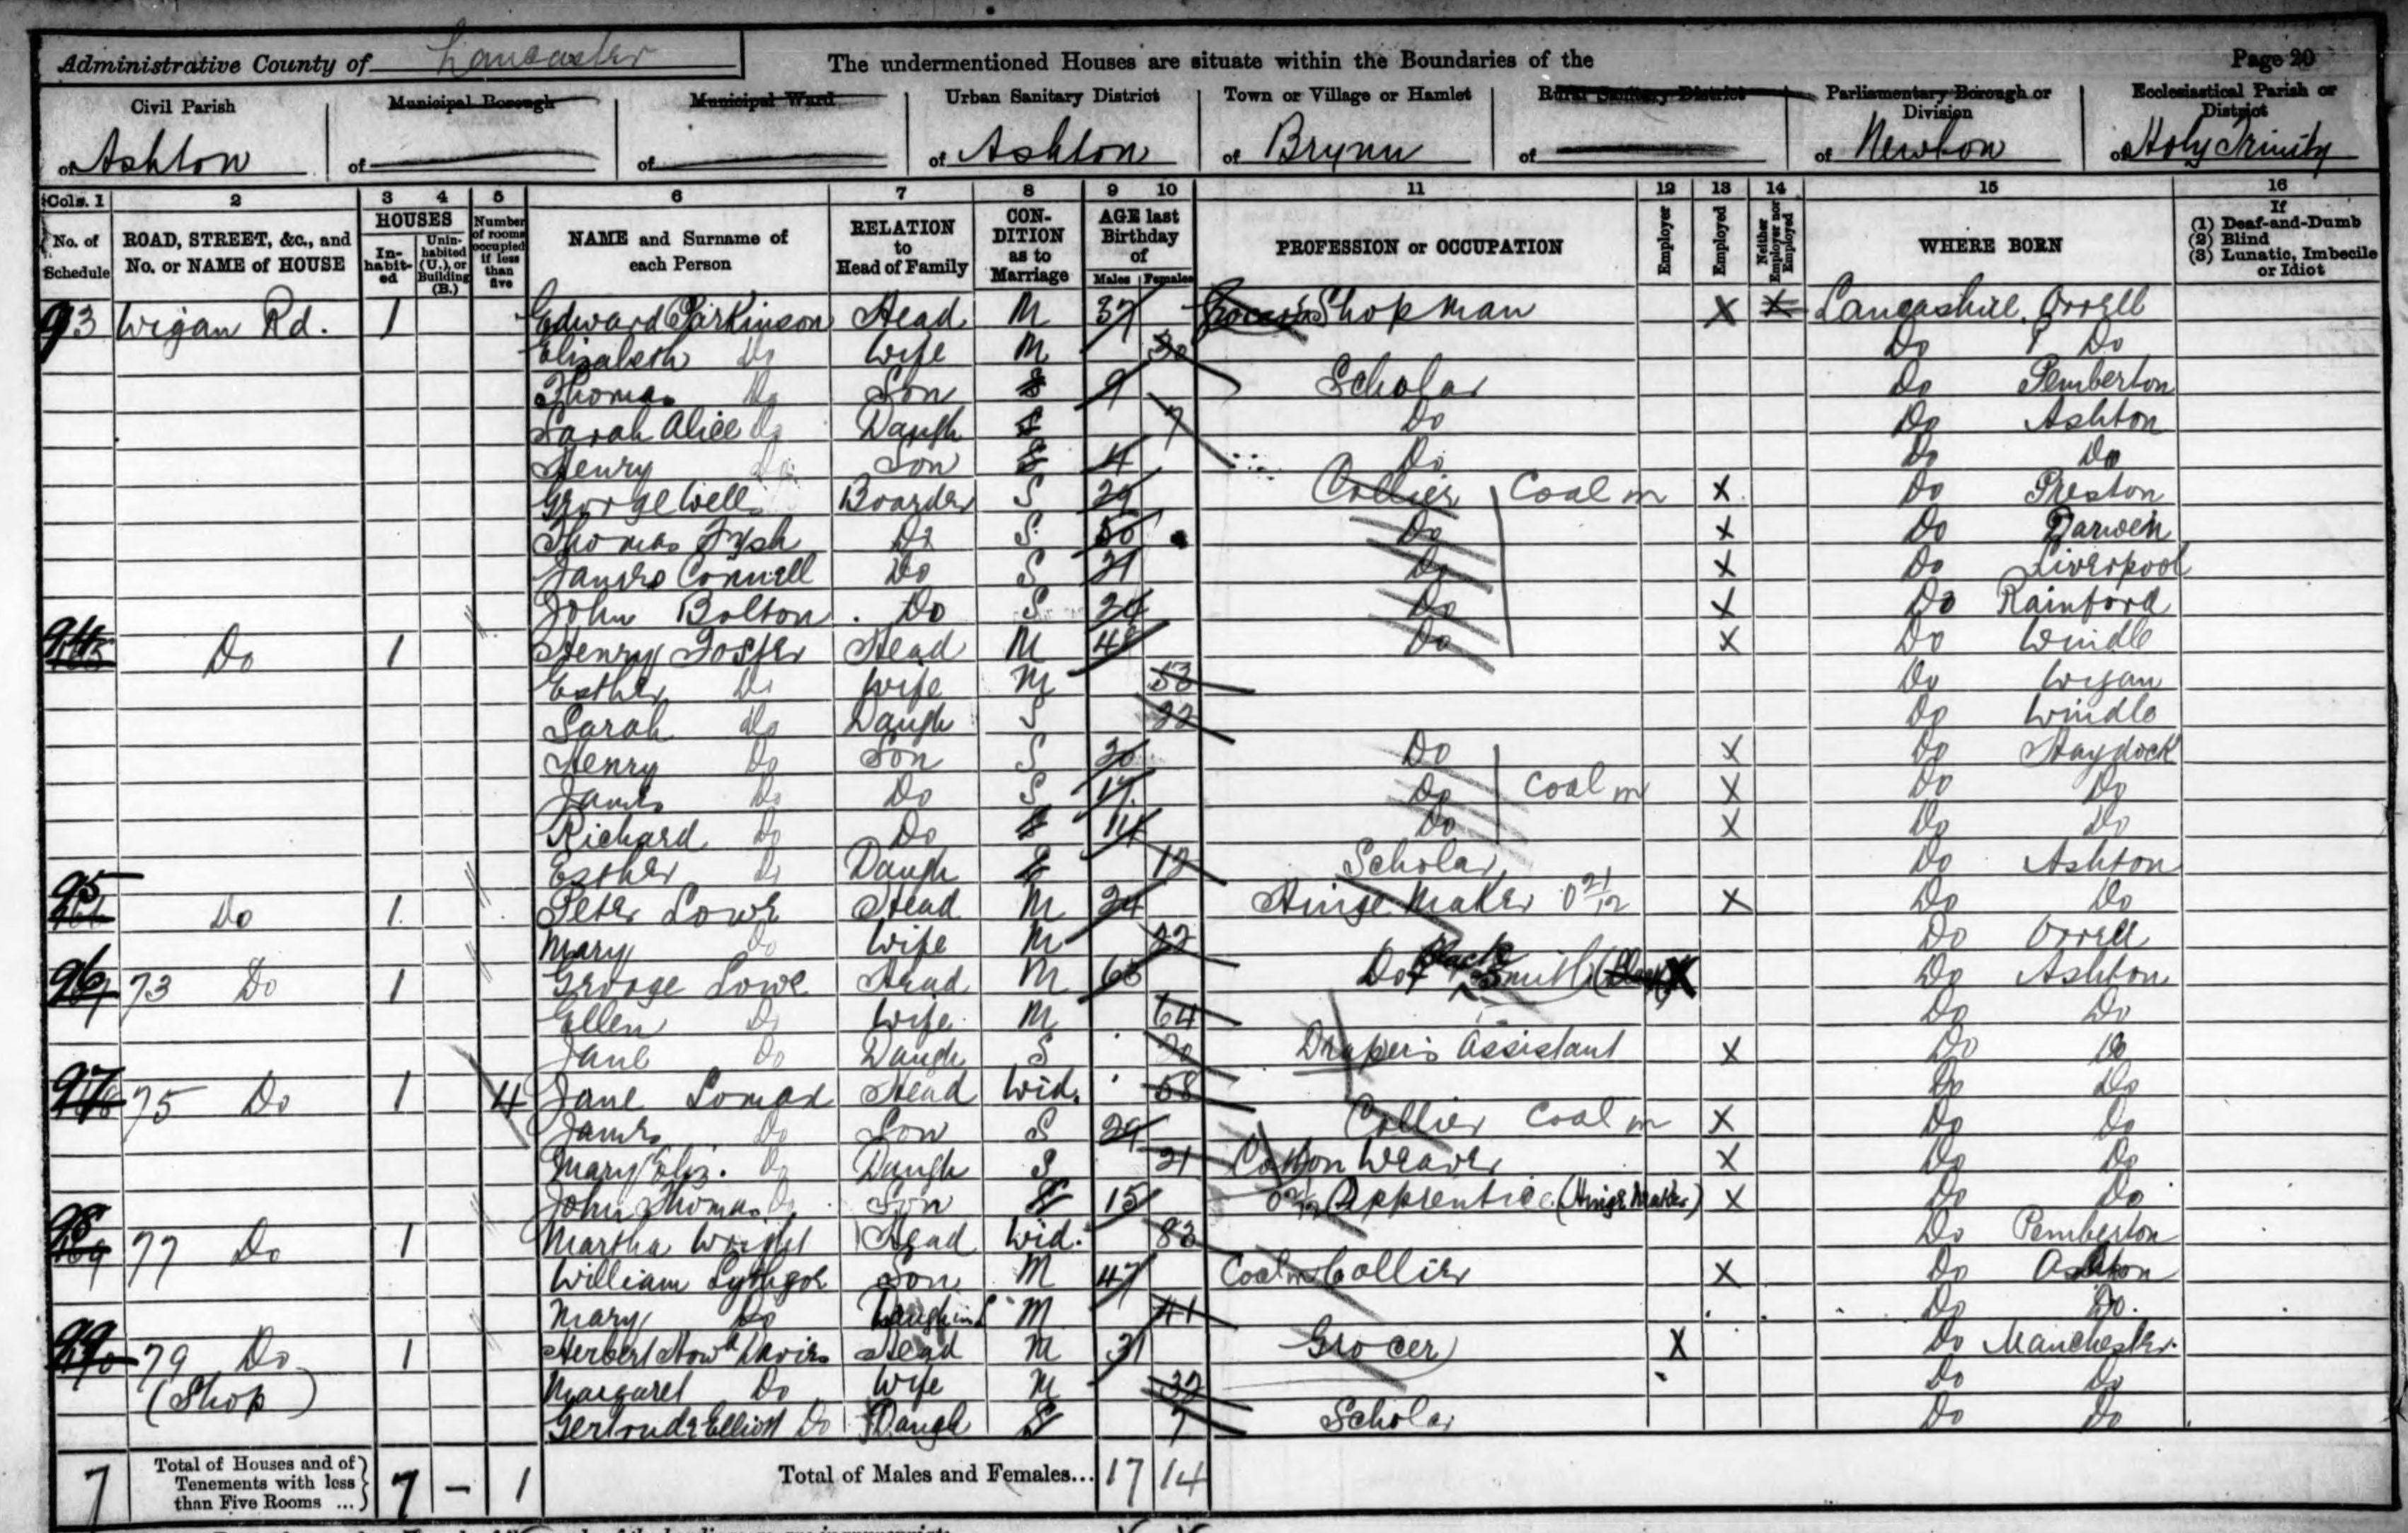 Administrative County of Lancaster The undermentioned Houses are situate within the Boundaries of the Page 20
Civil Parish Municipal Borough Municipal Ward Urban Sanitary District Town or Village or Hamlet Rural Sanitary District Parliamentary Borough or Division Ecclesiastical Parish or District
of Ashton of of of Ashton of Brynn of of Newton of Holy Trinity
Cols. 1 2 3 4 5 6 7 8 9 10 11 12 13 14 15 16
No. of Schedule ROAD, STREET, &c., and No. or NAME of HOUSE HOUSES Inhabited Uninhabited (U.), or Building (B.) Number of rooms occupied if less than five NAME and Surname of each Person RELATION to Head of Family CONDITION as to Marriage AGE last Birthday of Males Females PROFESSION or OCCUPATION Employer Employed Neither Employer nor Employed WHERE BORN If (1) Deaf-and-Dumb (2) Blind (3) Lunatic, Imbecile or Idiot
93 Wigan Rd. 1 Edward Parkinson Head M 37 Grocer's Shopman X X Lancashire, Orrell
Elizabeth Do Wife M 30 Do Do
Thomas Do Son S 9 Scholar Do Pemberton
Sarah Alice Do Daugh S 7 Do Do Ashton
Henry Do Son S 4 Do Do Do
George Well Boarder S 29 Collier Coal m X Do Preston
Thomas Do S 50 Do X Do Darwen
James Connell Do S 21 Do X Do Liverpool
John Bolton Do S 24 Do X Do Rainford
94 Do 1 Henry Foster Head M 48 Do X Do Windle
Esther Do Wife M 53 Do Wigan
Sarah Do Daugh S 22 Do Windle
Henry Do Son S 20 Do X Do Haydock
James Do Do S 17 Do Coal m X Do Do
Richard Do Do S 14 Do X Do Do
Esther Do Daugh S 12 Scholar Do Ashton
95 Do 1 Peter Lowe Head M 24 Hinge Maker X Do Do
Mary Do Wife M 22 Do Orrell
96 73 Do 1 George Lowe Head M 65 Do & Black Smith X Do Ashton
Ellen Do Wife M 64 Do Do
Jane Do Daugh S 20 Draper's Assistant X Do Do
97 75 Do 1 4 Jane Lomax Head Wid. 58 Do Do
James Do Son S 29 Collier Coal m X Do Do
Mary Eliz. Do Daugh S 21 Cotton Weaver X Do Do
John Thomas Do Son S 15 Apprentice (Hinge Maker) X Do Do
98 77 Do 1 Martha Wright Head Wid. 83 Do Pemberton
William Lythgoe Son M 47 Coal m Collier X Do Ashton
Mary Do Daugh in L M 41 Do Do.
99 79 Do 1 Herbert Howd Davies Head M 31 Grocer X Do Manchester
(Shop) Margaret Do Wife M 32 Do Do
Gertrude Elliott Do Daugh S 7 Scholar Do Do
7 Total of Houses and of Tenements with less than Five Rooms ... 7 - 1 Total of Males and Females... 17 14